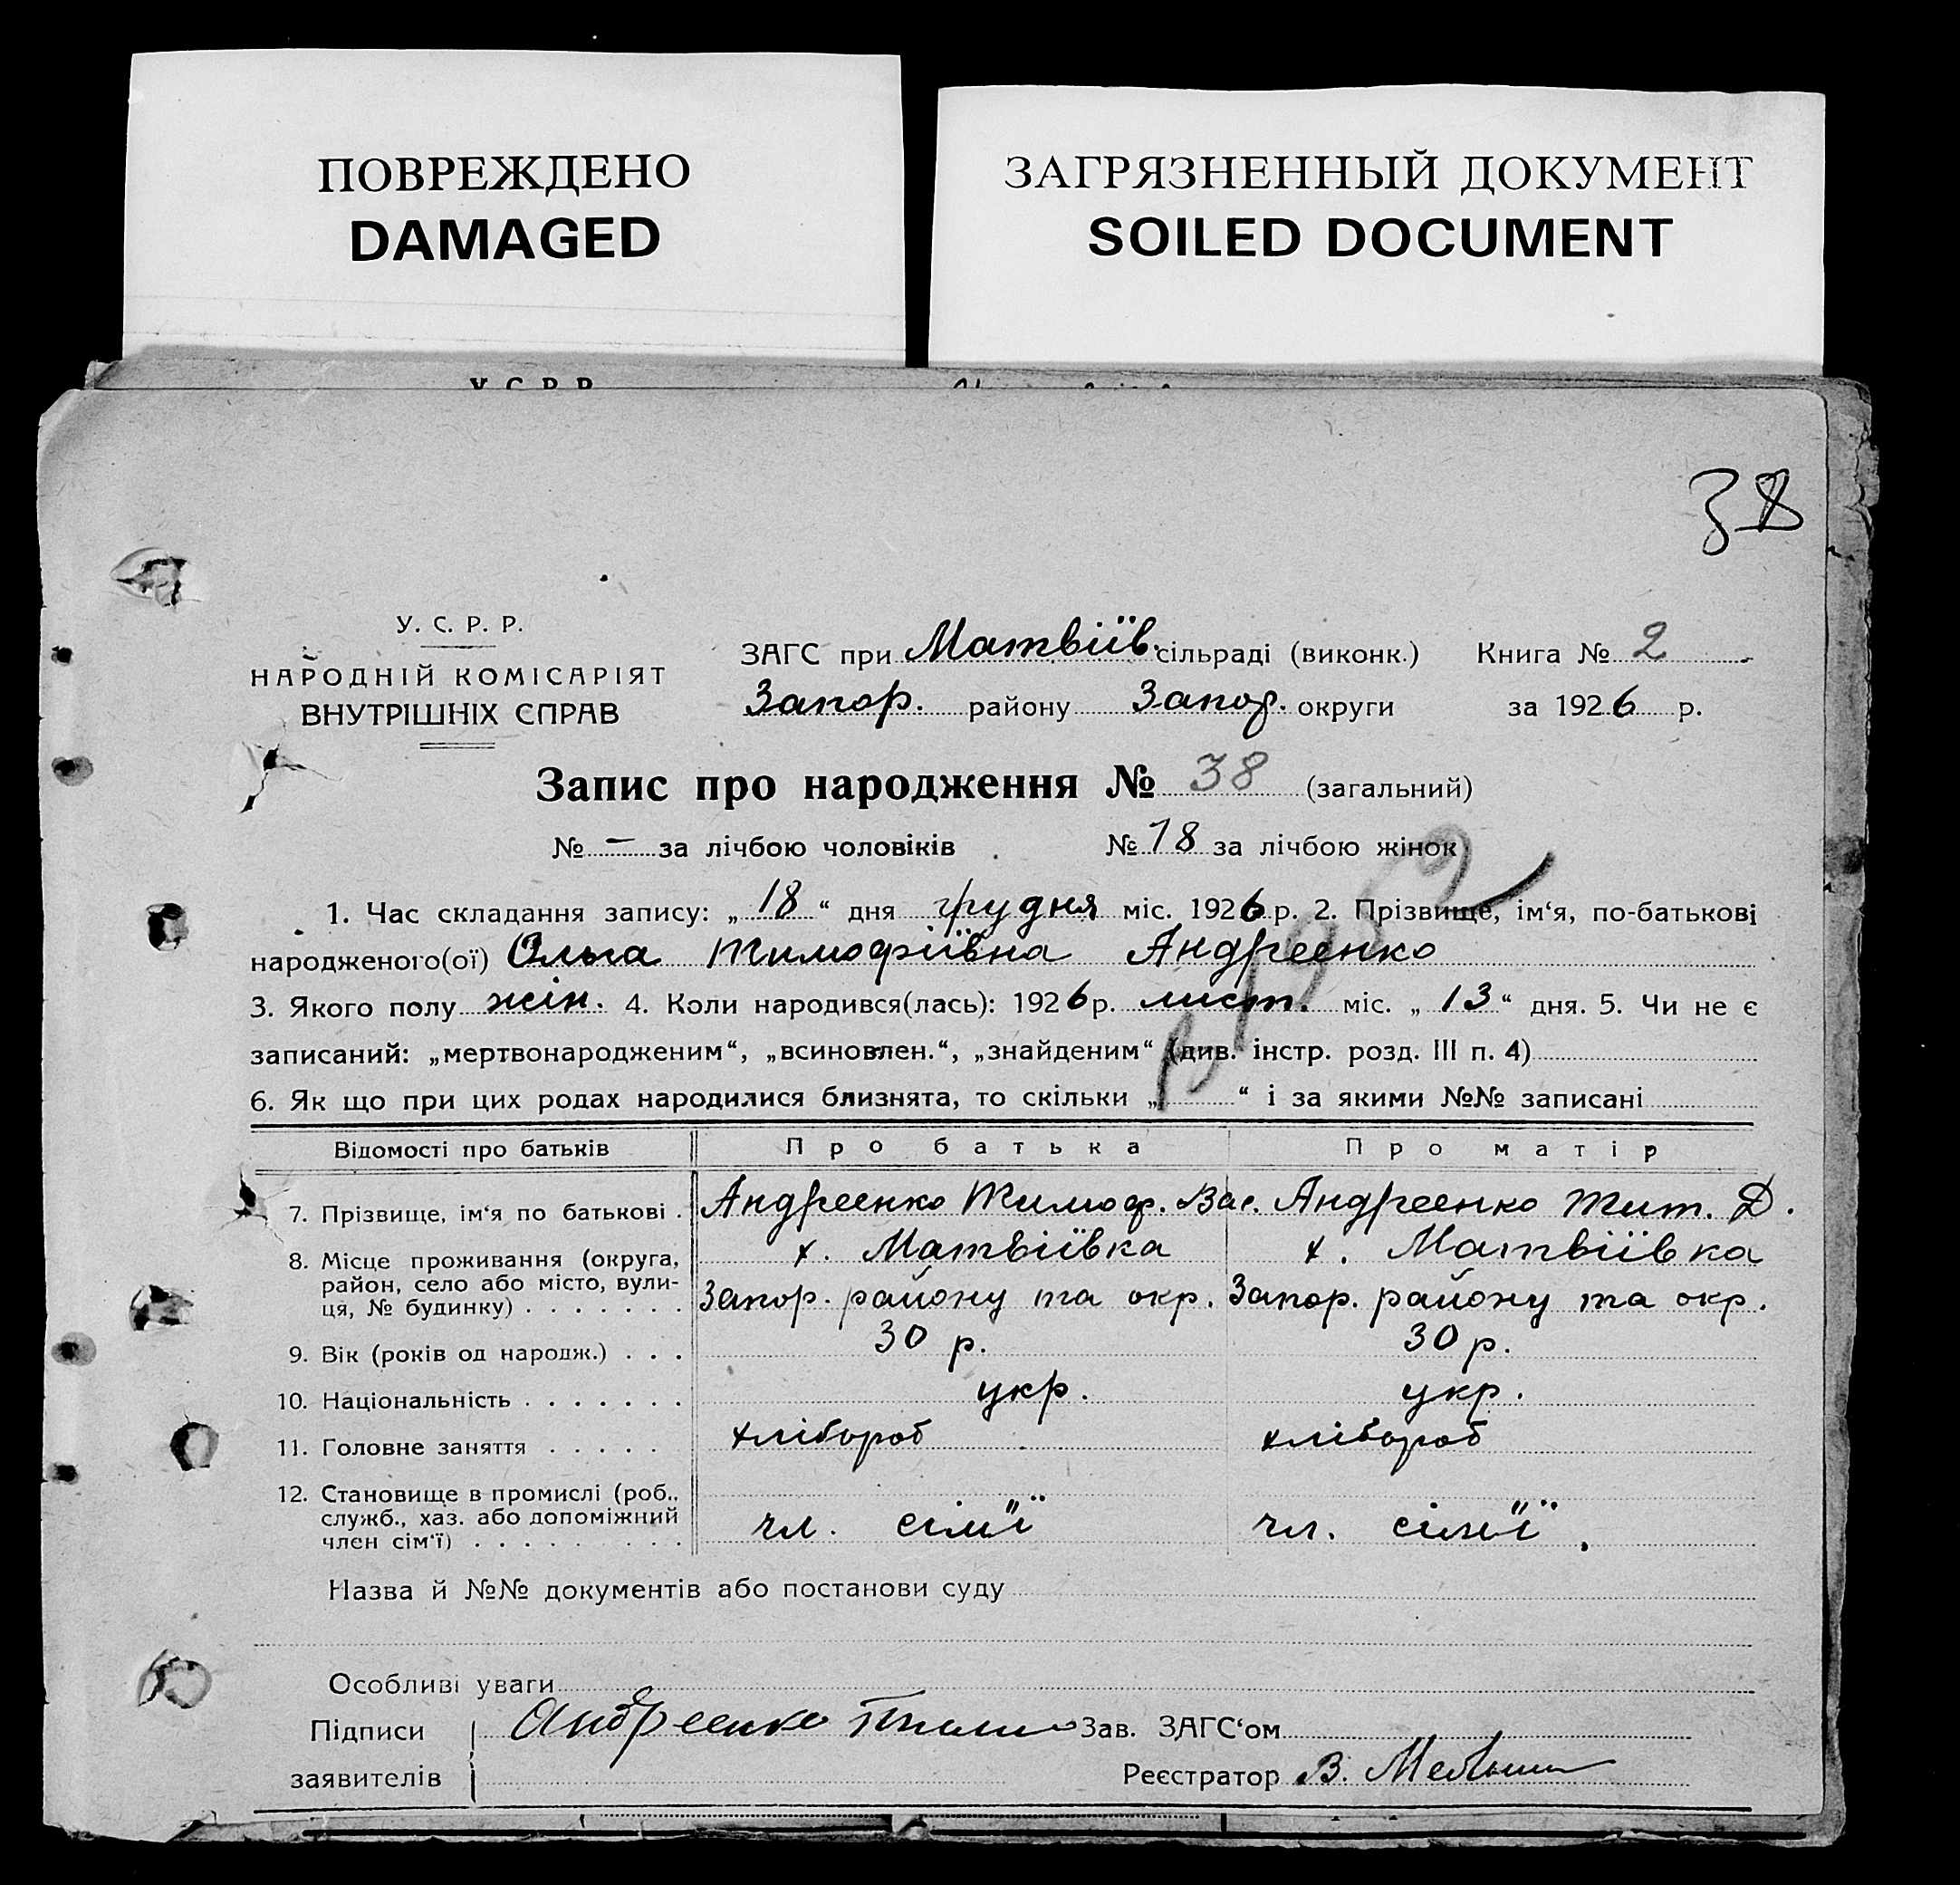 ПОВРЕЖДЕНО
DAMAGED
ЗАГРЯЗНЕННЫЙ ДОКУМЕНТ
SOILED DOCUMENT
У С Р Р
38
У. С. Р. Р.
НАРОДНІЙ КОМІСАРІЯТ
ВНУТРІШНІХ СПРАВ
ЗАГС при Матвіїв. сільраді (виконк.) Книга № 2
Запор. району Запор. округи за 1926 р.
Запис про народження № 38 (загальний)
№ – за лічбою чоловіків № 18 за лічбою жінок
1. Час складання запису: „18“ дня грудня міс. 1926 р. 2. Прізвище, ім‘я, по-батькові
народженого(ої) Ольга Тимофіївна Андреенко
3. Якого полу жін. 4. Коли народився(лась): 1926 р. лист. міс. „13“ дня. 5. Чи не є
записаний: „мертвонародженим“, „всиновлен.“, „знайденим“ (див. інстр. розд. III п. 4)
6. Як що при цих родах народилися близнята, то скільки „ “ і за якими №№ записані
Відомості про батьків Про батька Про матір
7. Прізвище, ім‘я по батькові . Андреенко Тимоф. Вас. Андреенко Тит. Д.
8. Місце проживання (округа, х. Матвіївка х. Матвіївка
район, село або місто, вули-
ця, № будинку) . . . . . . . Запор. району та окр. Запор. району та окр.
9. Вік (років од народж.) . . . 30 р. 30 р.
10. Національність . . . . . . . укр. укр.
11. Головне заняття . . . . . хлібороб хлібороб
12. Становище в промислі (роб.,
служб., хаз. або допоміжний чл. сім"ї чл. сім"ї.
член сім‘ї) . . . . . . . . .
Назва й №№ документів або постанови суду
Особливі уваги
Підписи Андреенко Зав. ЗАГС‘ом
заявителів Реєстратор В.